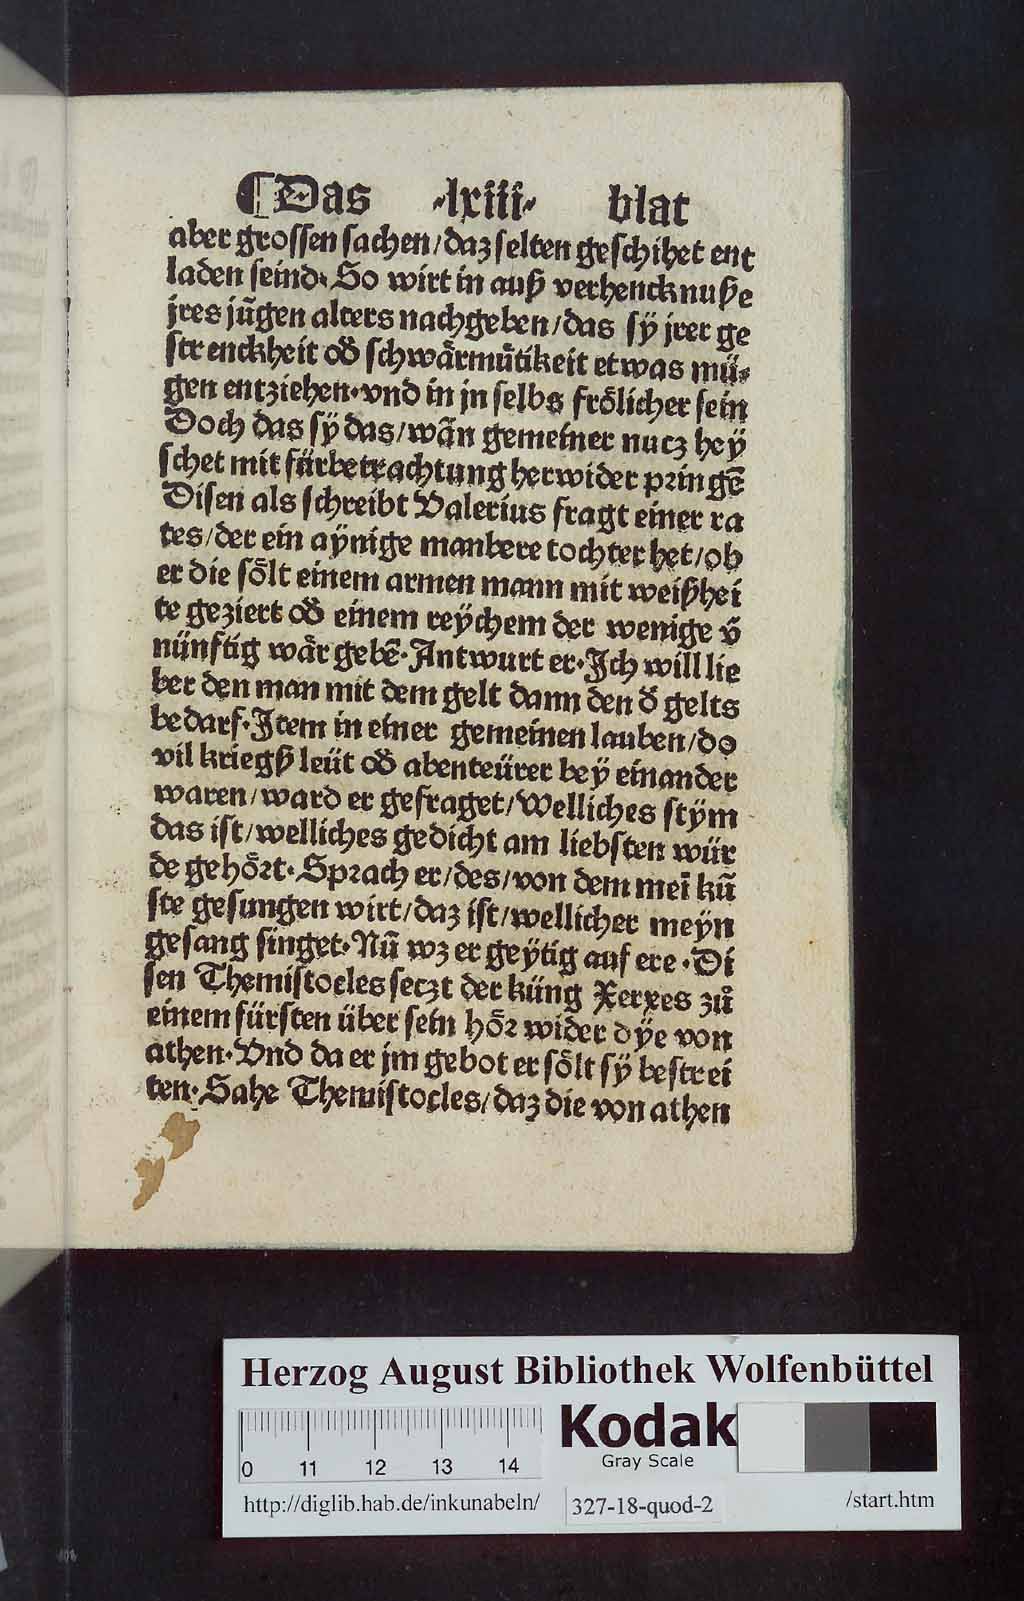 ¶Das ·lxiii· blat
aber grossen sachen/daz selten geschihet ent
laden seind· So wirt in auß verhencknuße
jres jũgen alters nachgeben/das sÿ jrer ge
strenckheit od̃ schwaͤrmuͤtikeit etwas mü⸗
gen entziehen·vnd in jn selbs froͤlicher sein
Doch das sÿ das/wãn gemeiner nutz heÿ
schet mit fürbetrachtung herwider pringẽ
Disen als schreibt Valerius fragt einer ra
tes/der ein aÿnige manbere tochter het/ob
er die soͤlt einem armen mann mit weißhei
te geziert od̃ einem reÿchem der wenige ṽ
nünftig waͤr gebẽ·Antwurt er·Ich will lie
ber den man mit dem gelt dann den d̃ gelts
bedarf·Item in einer gemeinen lauben/do
vil kriegß leüt od̃ abenteürer beÿ einander
waren/ward er gefraget/Welliches stÿm
das ist/welliches gedicht am liebsten wür
de gehoͤrt·Sprach er/des/von dem meĩ kũ
ste gesungen wirt/daz ist/wellicher meÿn
gesang singet·Nũ wz er geÿtig auf ere·Di
sen Themistocles seczt der küng Xerxes zuͦ
einem fürsten über sein hoͤr wider dÿe von
athen·Vnd da er jm gebot er soͤlt sÿ bestrei
ten·Sahe Themistocles/daz die von athen
Herzog August Bibliothek Wolfenbüttel
Kodak
Gray Scale
0 11 12 13 14
http://diglib.hab.de/inkunabeln/ 327-18-quod-2 /start.htm